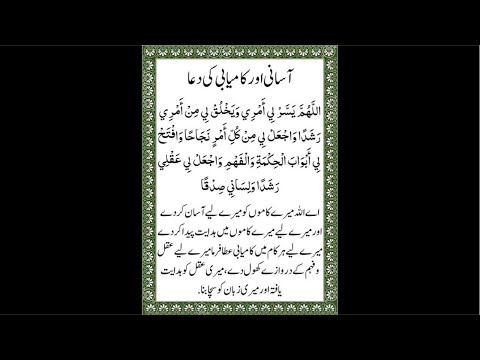 آسانی اور کامیابی کی دعا
اللَّهُمَّ يَسِّرْ لِي أَمْرِي وَيَخْلُقْ لِي مِنْ أَمْرِي
رَشَدًا وَاجْعَلْ لِي مِنْ كُلِّ أَمْرٍ نَجَاحًا وَافْتَحْ
لِي أَبْوَابَ الْحِكْمَةِ وَالْفَهْمِ وَاجْعَلْ لِي عَقْلِي
رَشَدًا وَلِسَانِي صِدْقًا
اے اللہ میرے کاموں کو میرے لیے آسان کر دے
اور میرے لیے میرے کاموں میں ہدایت پیدا کر دے
میرے لیے ہر کام میں کامیابی عطا فرما میرے لیے عقل
و فہم کے دروازے کھول دے، میری عقل کو ہدایت
یافتہ اور میری زبان کو سچا بنا۔